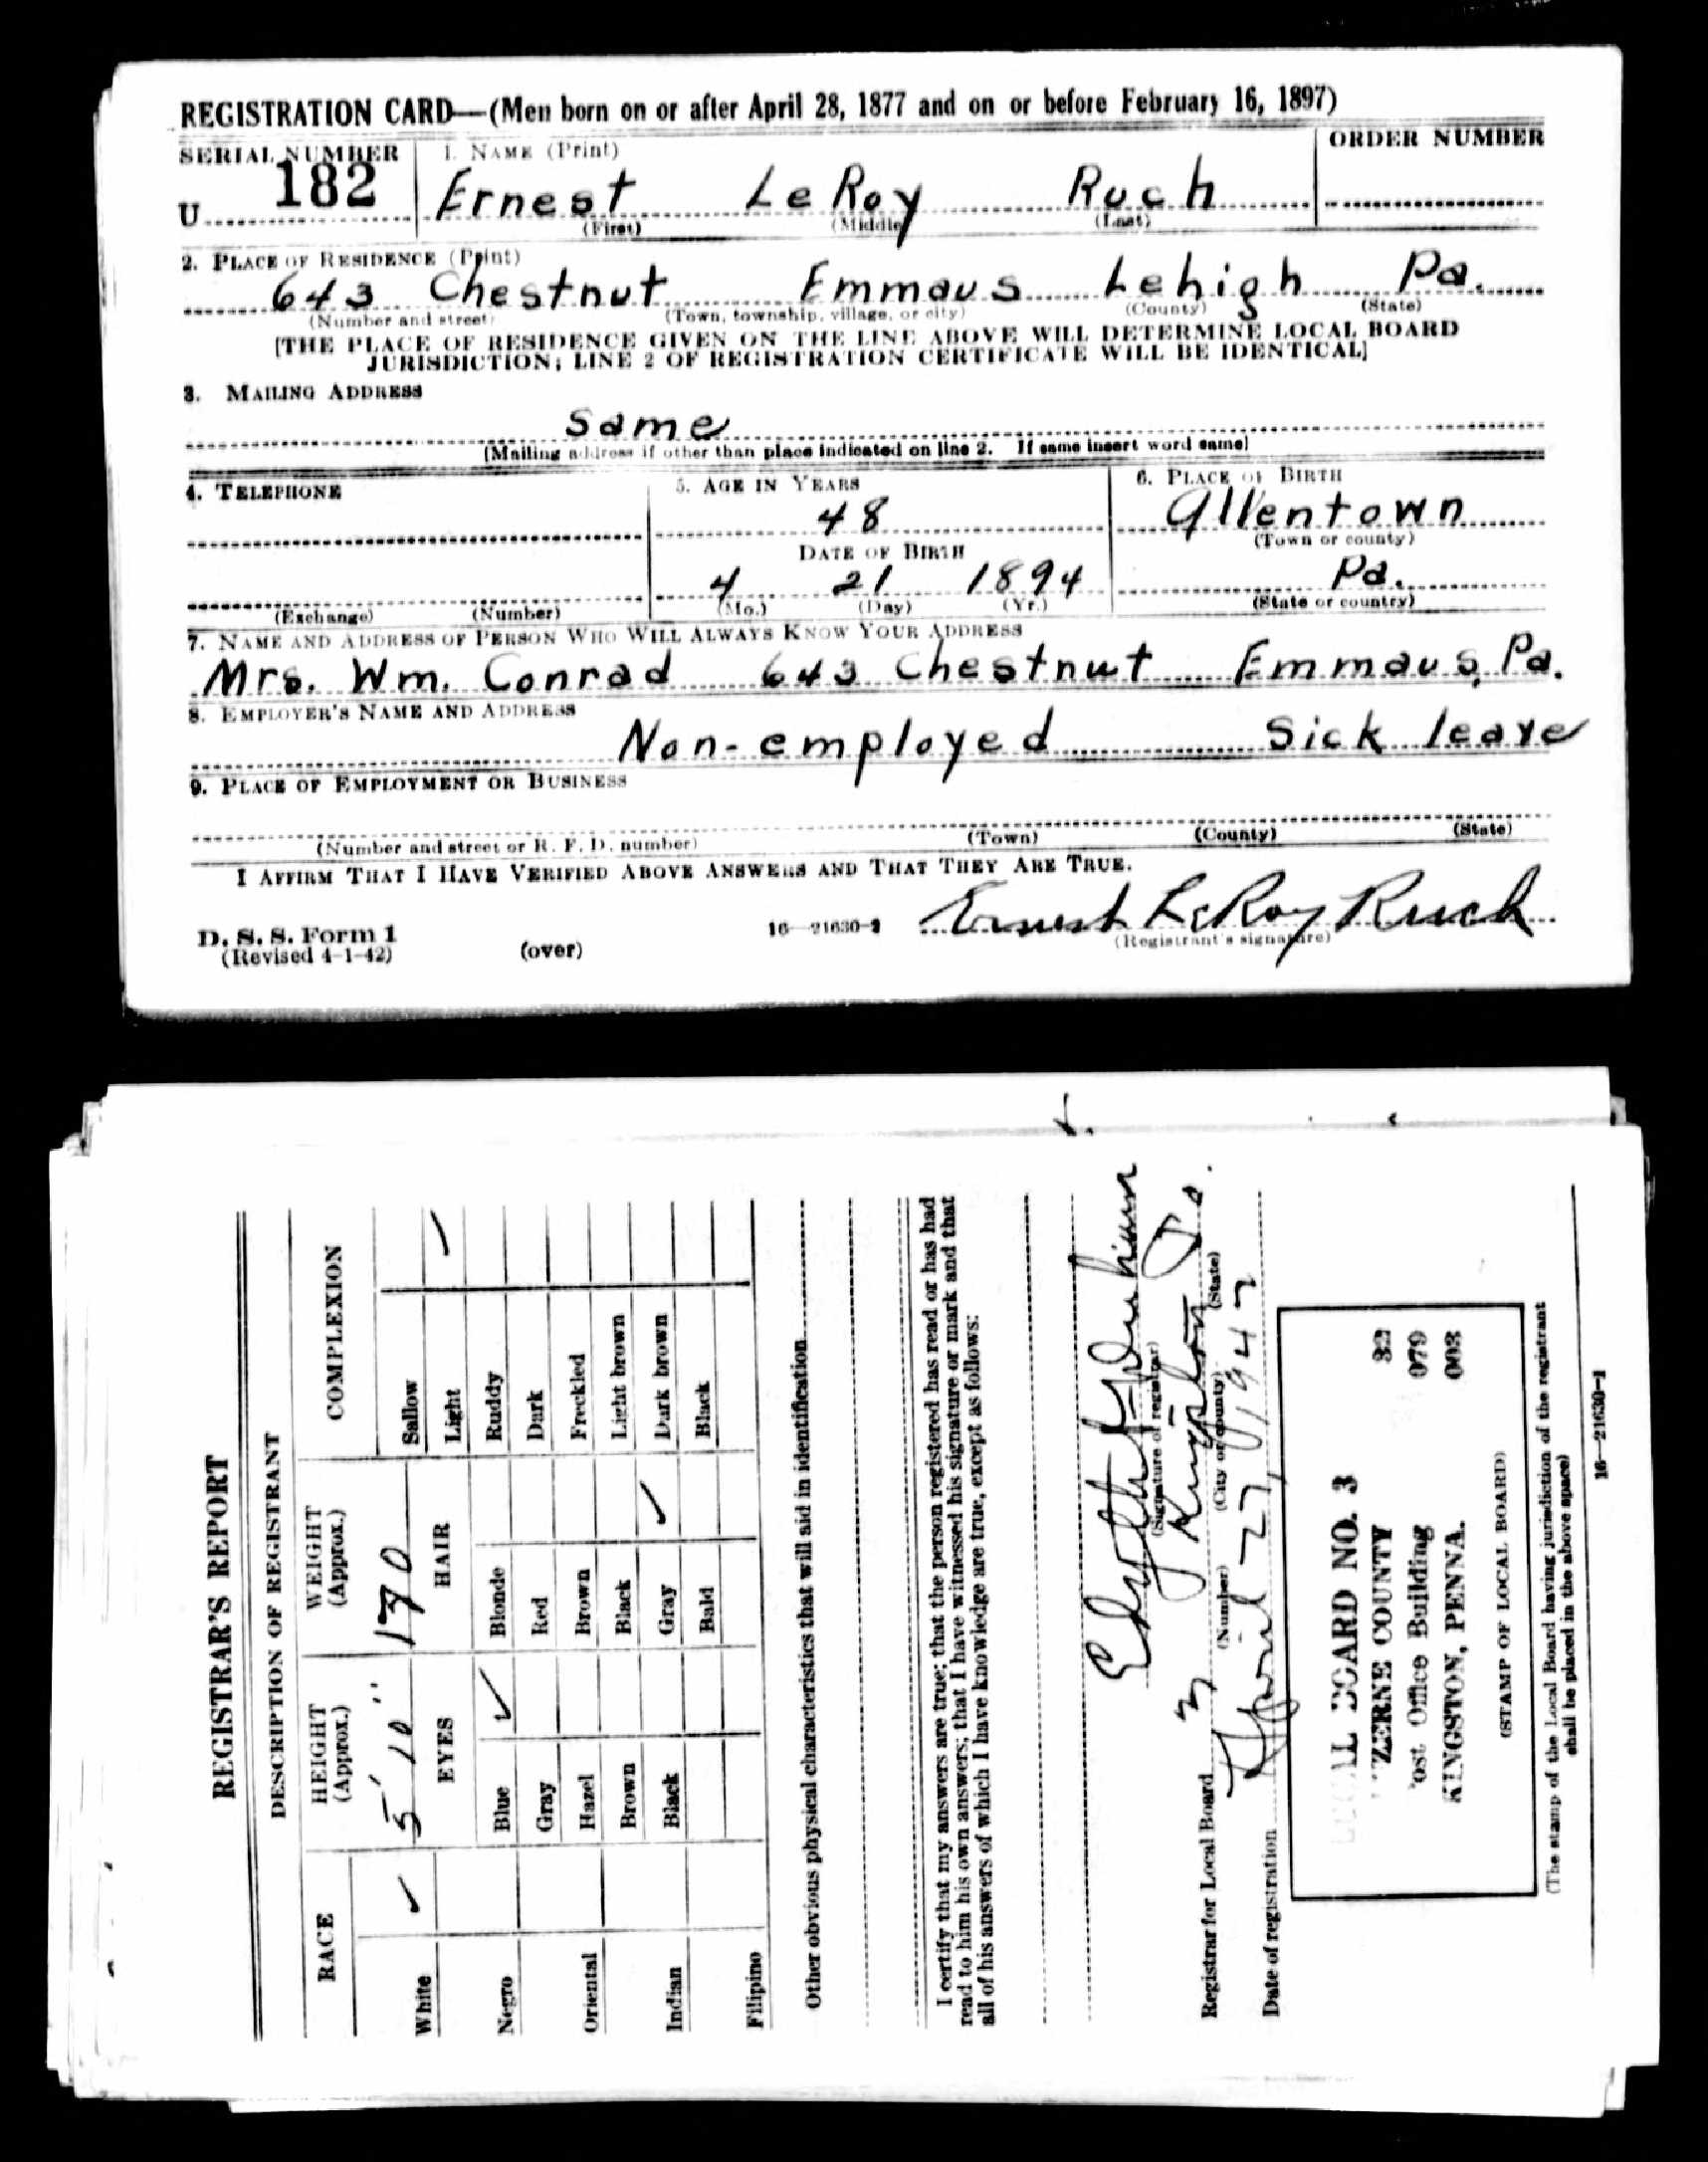 REGISTRATION CARD—(Men born on or after April 28, 1877 and on or before February 16, 1897)
SERIAL NUMBER 1. NAME (Print) ORDER NUMBER
U 182 Ernest LeRoy Ruch
(First) (Middle) (Last)
2. PLACE OF RESIDENCE (Print)
643 Chestnut Emmaus Lehigh Pa.
(Number and street) (Town, township, village, or city) (County) (State)
[THE PLACE OF RESIDENCE GIVEN ON THE LINE ABOVE WILL DETERMINE LOCAL BOARD
JURISDICTION; LINE 2 OF REGISTRATION CERTIFICATE WILL BE IDENTICAL]
3. MAILING ADDRESS
Same
(Mailing address if other than place indicated on line 2. If same insert word same)
4. TELEPHONE 5. AGE IN YEARS 6. PLACE OF BIRTH
48 Allentown
(Town or county)
DATE OF BIRTH
4 21 1894 Pa.
(Exchange) (Number) (Mo.) (Day) (Yr.) (State or country)
7. NAME AND ADDRESS OF PERSON WHO WILL ALWAYS KNOW YOUR ADDRESS
Mrs. Wm. Conrad 643 Chestnut Emmaus, Pa.
8. EMPLOYER'S NAME AND ADDRESS
Non-employed Sick leave
9. PLACE OF EMPLOYMENT OR BUSINESS
(Number and street or R. F. D. number) (Town) (County) (State)
I AFFIRM THAT I HAVE VERIFIED ABOVE ANSWERS AND THAT THEY ARE TRUE.
D. S. S. Form 1 16—21630-2 Ernest LeRoy Ruch
(Revised 4-1-42) (over) (Registrant's signature)
REGISTRAR'S REPORT
DESCRIPTION OF REGISTRANT
RACE HEIGHT (Approx.) WEIGHT (Approx.) COMPLEXION
White ✓ 5' 10" 170 Sallow
EYES HAIR Light ✓
Negro Blue ✓ Blonde Ruddy
Gray Red Dark
Oriental Hazel Brown Freckled
Brown Black Light brown
Indian Black Gray ✓ Dark brown
Bald Black
Filipino
Other obvious physical characteristics that will aid in identification
I certify that my answers are true; that the person registered has read or has had
read to him his own answers; that I have witnessed his signature or mark and that
all of his answers of which I have knowledge are true, except as follows:
(Signature of registrar)
Registrar for Local Board 3 Kingston Pa.
(Number) (City or county) (State)
Date of registration April 27, 1942
LOCAL BOARD NO. 3 32
ZERNE COUNTY 079
ost Office Building 003
KINGSTON, PENNA.
(STAMP OF LOCAL BOARD)
(The stamp of the Local Board having jurisdiction of the registrant
shall be placed in the above space)
16—21630-1